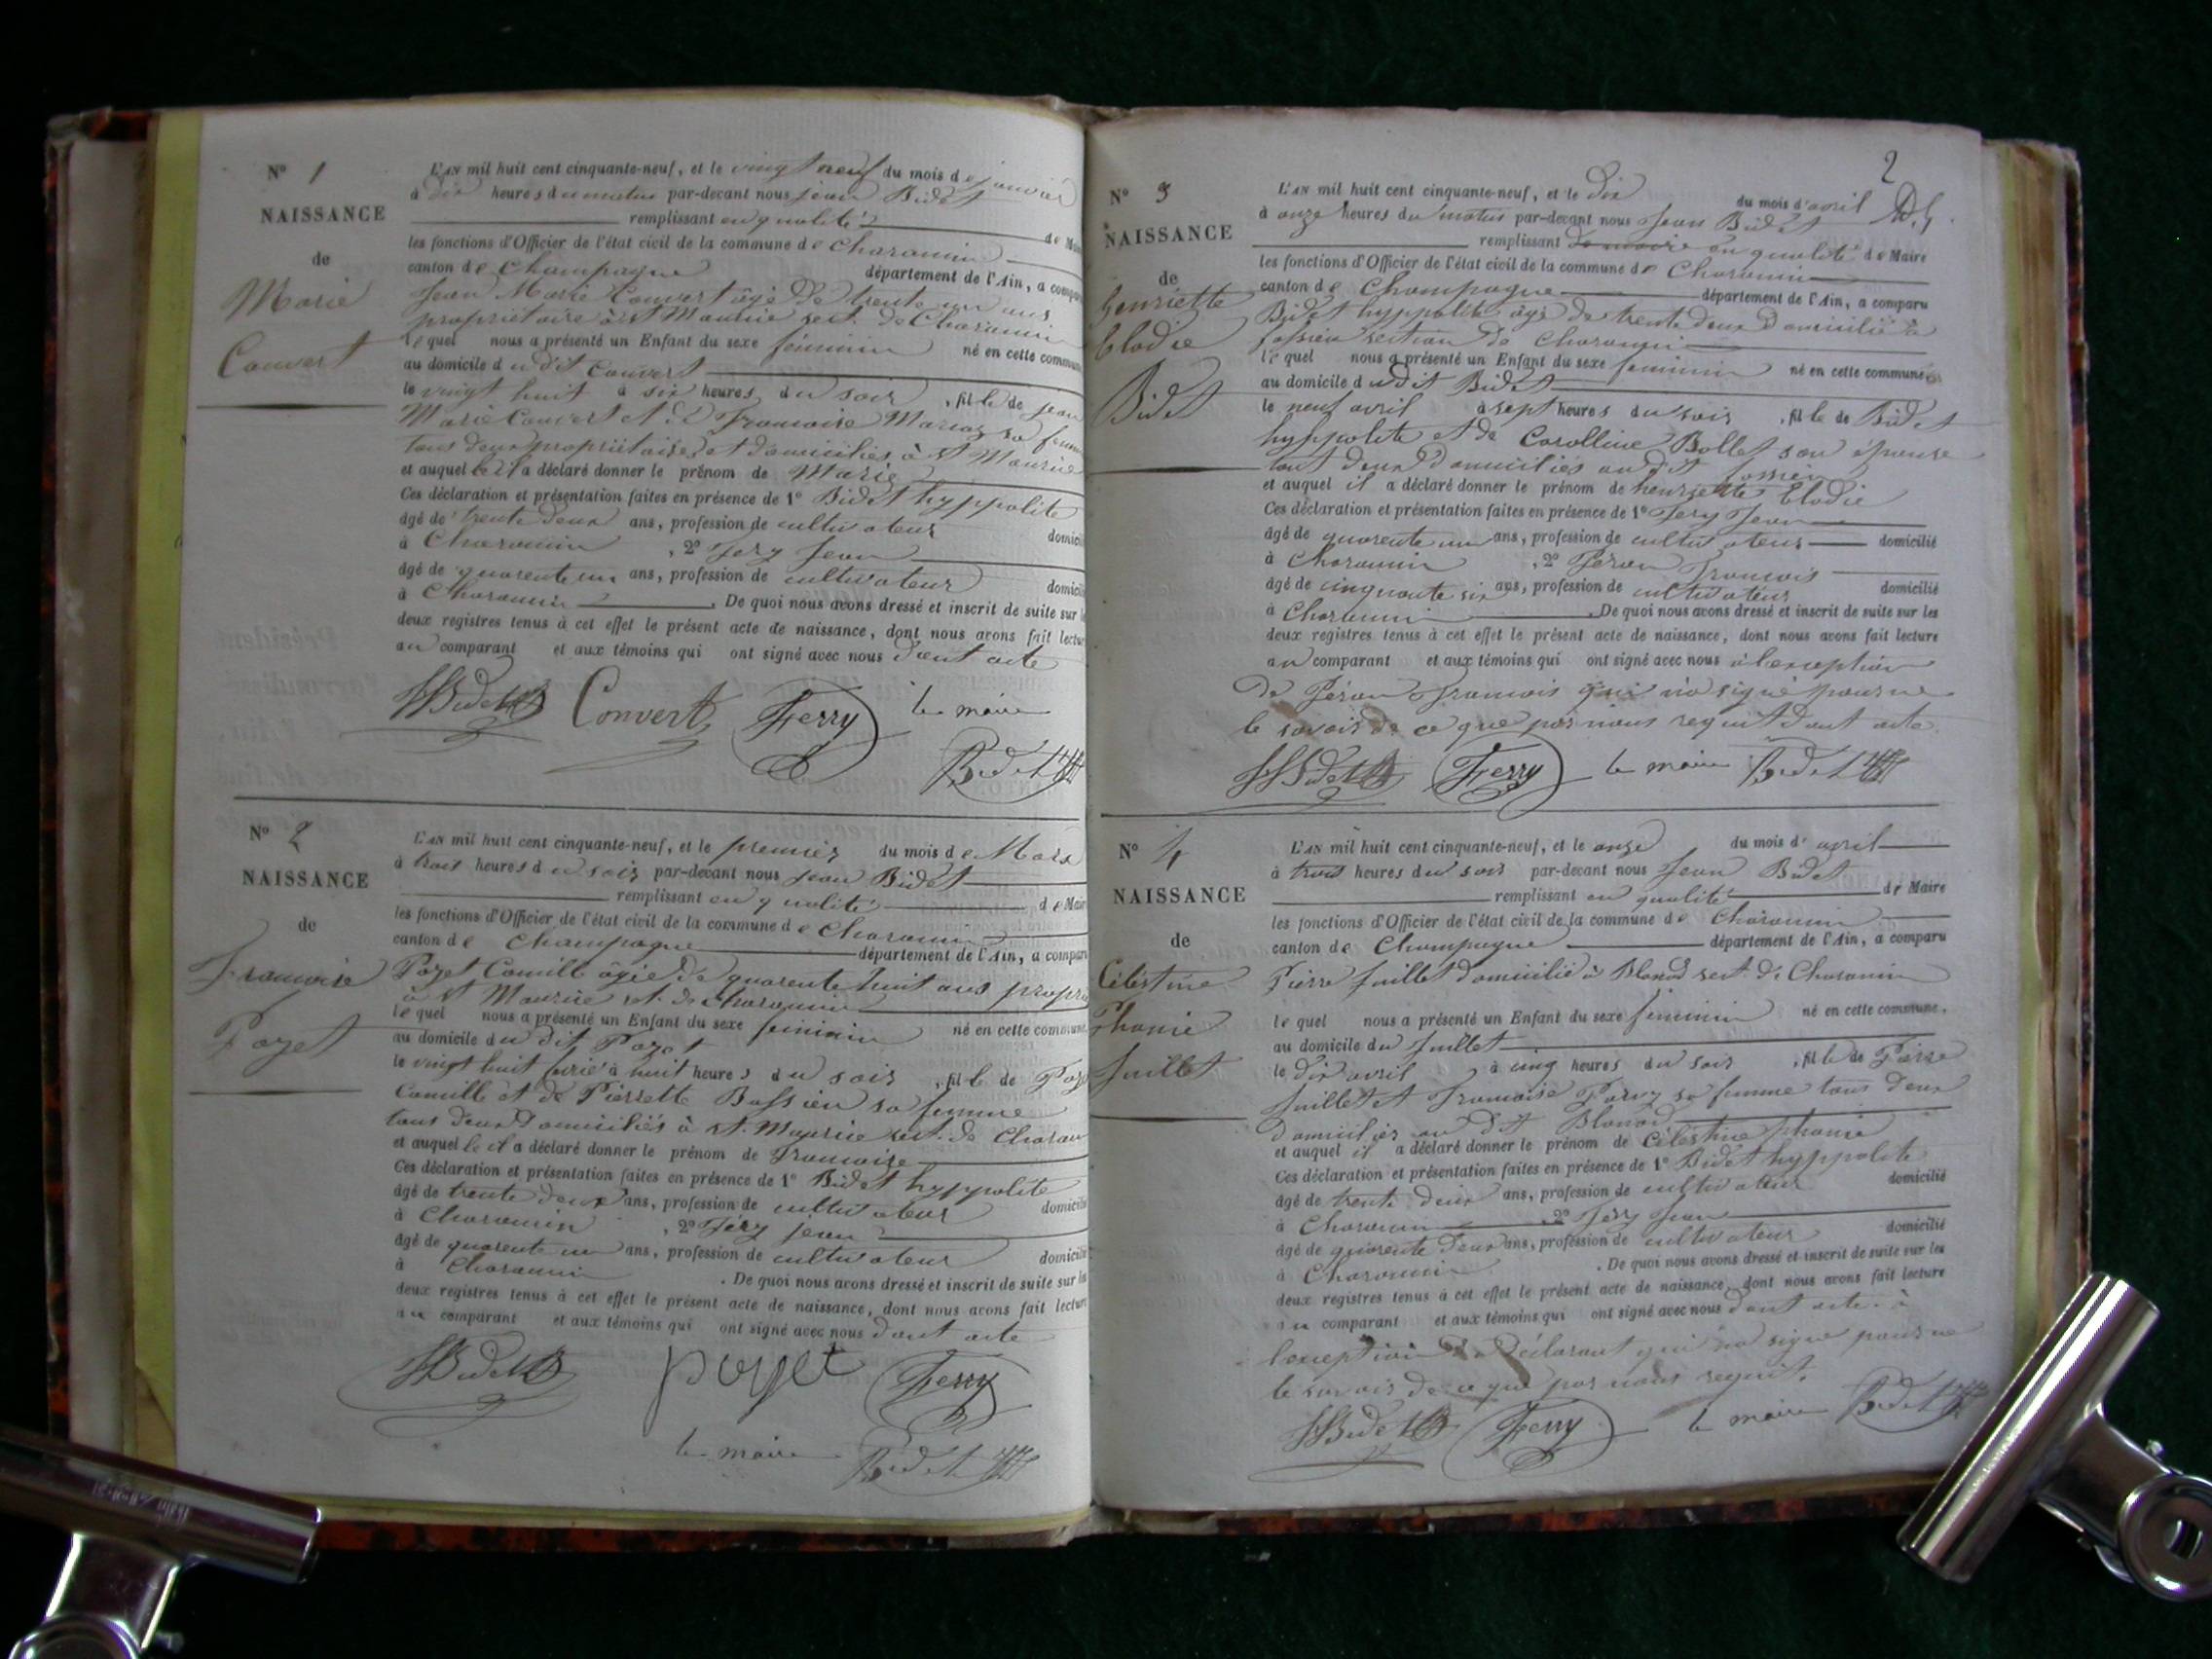 N° 1
NAISSANCE
de
Marie
Convert
L'AN mil huit cent cinquante-neuf, et le vingt neuf du mois de janvier
à dix heures du matin par-devant nous jean Bidet
remplissant en qualité de Maire
les fonctions d'Officier de l'état civil de la commune de Charancin
canton de Champagne département de l'Ain, a comparu
Jean Marie Convert âgé de trente un ans
propriétaire à st Maurice sect. de Charancin
lequel nous a présenté un Enfant du sexe féminin né en cette commune
au domicile du dit Convert
le vingt huit à six heures du soir, fille de jean
Marie Convert et de Francoise sa femme
tous deux propriétaires et domiciliés à st Maurice
et auquel le il a déclaré donner le prénom de Marie
Ces déclaration et présentation faites en présence de 1° Bidet hyppolite
âgé de trente deux ans, profession de cultivateur domicilié
à Charancin, 2° Fery Jean
âgé de quarente un ans, profession de cultivateur domicilié
à Charancin. De quoi nous avons dressé et inscrit de suite sur les
deux registres tenus à cet effet le présent acte de naissance, dont nous avons fait lecture
au comparant et aux témoins qui ont signé avec nous dont acte
HBidet Convert Ferry le maire
Bidet
N° 2
NAISSANCE
de
Francoise
Pozet
L'AN mil huit cent cinquante-neuf, et le premier du mois de Mars
à trois heures du soir par-devant nous jean Bidet
remplissant en qualité de Maire
les fonctions d'Officier de l'état civil de la commune de Charancin
canton de Champagne département de l'Ain, a comparu
Pozet Camille âgée de quarente huit ans propre
à st Maurice st. de Charancin
lequel nous a présenté un Enfant du sexe féminin né en cette commune.
au domicile du dit Pozet
le vingt huit à huit heures du soir, fille de Pozet
Camille et de Pierrette Bossieu sa femme
tous deux domiciliés à st. Maurice sect. de Charan
et auquel le il a déclaré donner le prénom de Francoise
Ces déclaration et présentation faites en présence de 1° Bidet hyppolite
âgé de trente deux ans, profession de cultivateur domicilié
à Charancin, 2° Fery jean
âgé de quarente un ans, profession de cultivateur domicilié
à Charancin. De quoi nous avons dressé et inscrit de suite sur les
deux registres tenus à cet effet le présent acte de naissance, dont nous avons fait lecture
au comparant et aux témoins qui ont signé avec nous dont acte
HBidet pozet Ferry
le maire Bidet
2
N° 3
NAISSANCE
de
henriette
Elodie
Bidet
L'AN mil huit cent cinquante-neuf, et le dix du mois d'avril
à onze heures du matin par-devant nous Jean Bidet
remplissant de maire en qualité de Maire
les fonctions d'Officier de l'état civil de la commune de Charancin
canton de Champagne département de l'Ain, a comparu
Bidet hyppolite âgé de trente deux domicilié à
fossieu section de Charancin
lequel nous a présenté un Enfant du sexe féminin né en cette commune
au domicile dudit Bidet
le neuf avril à sept heures du soir, fille de Bidet
hyppolite et de Carolline Bollet son épouse
tout deux domiciliés audit fossieu
et auquel il a déclaré donner le prénom de henriette Elodie
Ces déclaration et présentation faites en présence de 1° Fery Jean
âgé de quarente un ans, profession de cultivateur domicilié
à Charancin, 2° Péron Francois
âgé de cinquante six ans, profession de cultivateur domicilié
à Charancin. De quoi nous avons dressé et inscrit de suite sur les
deux registres tenus à cet effet le présent acte de naissance, dont nous avons fait lecture
au comparant et aux témoins qui ont signé avec nous à l'exception
de Péron Francois qui n'a signé pour ne
le savoir de ce que par nous requit dont acte
HBidet Ferry le maire Bidet
N° 4
NAISSANCE
de
Célestine
Phanie
Juillet
L'AN mil huit cent cinquante-neuf, et le onze du mois d'avril
à trois heures du soir par-devant nous Jean Bidet
remplissant en qualité de Maire
les fonctions d'Officier de l'état civil de la commune de Charancin
canton de Champagne département de l'Ain, a comparu
Pierre Juillet domicilié à Blanod sect. de Charancin
lequel nous a présenté un Enfant du sexe féminin né en cette commune,
au domicile du Juillet
le dix avril à cinq heures du soir, fille de Pierre
Juillet et Francoise sa femme tous deux
domiciliés au dit Blanod
et auquel il a déclaré donner le prénom de Célestine phanie
Ces déclaration et présentation faites en présence de 1° Bidet hyppolite
âgé de trente deux ans, profession de cultivateur domicilié
à Charancin, 2° Fery Jean
âgé de quarente deux ans, profession de cultivateur domicilié
à Charancin. De quoi nous avons dressé et inscrit de suite sur les
deux registres tenus à cet effet le présent acte de naissance, dont nous avons fait lecture
au comparant et aux témoins qui ont signé avec nous dont acte. à
l'exception du déclarant qui n'a signé pour ne
le savoir de ce que par nous requit.
HBidet Ferry le maire Bidet